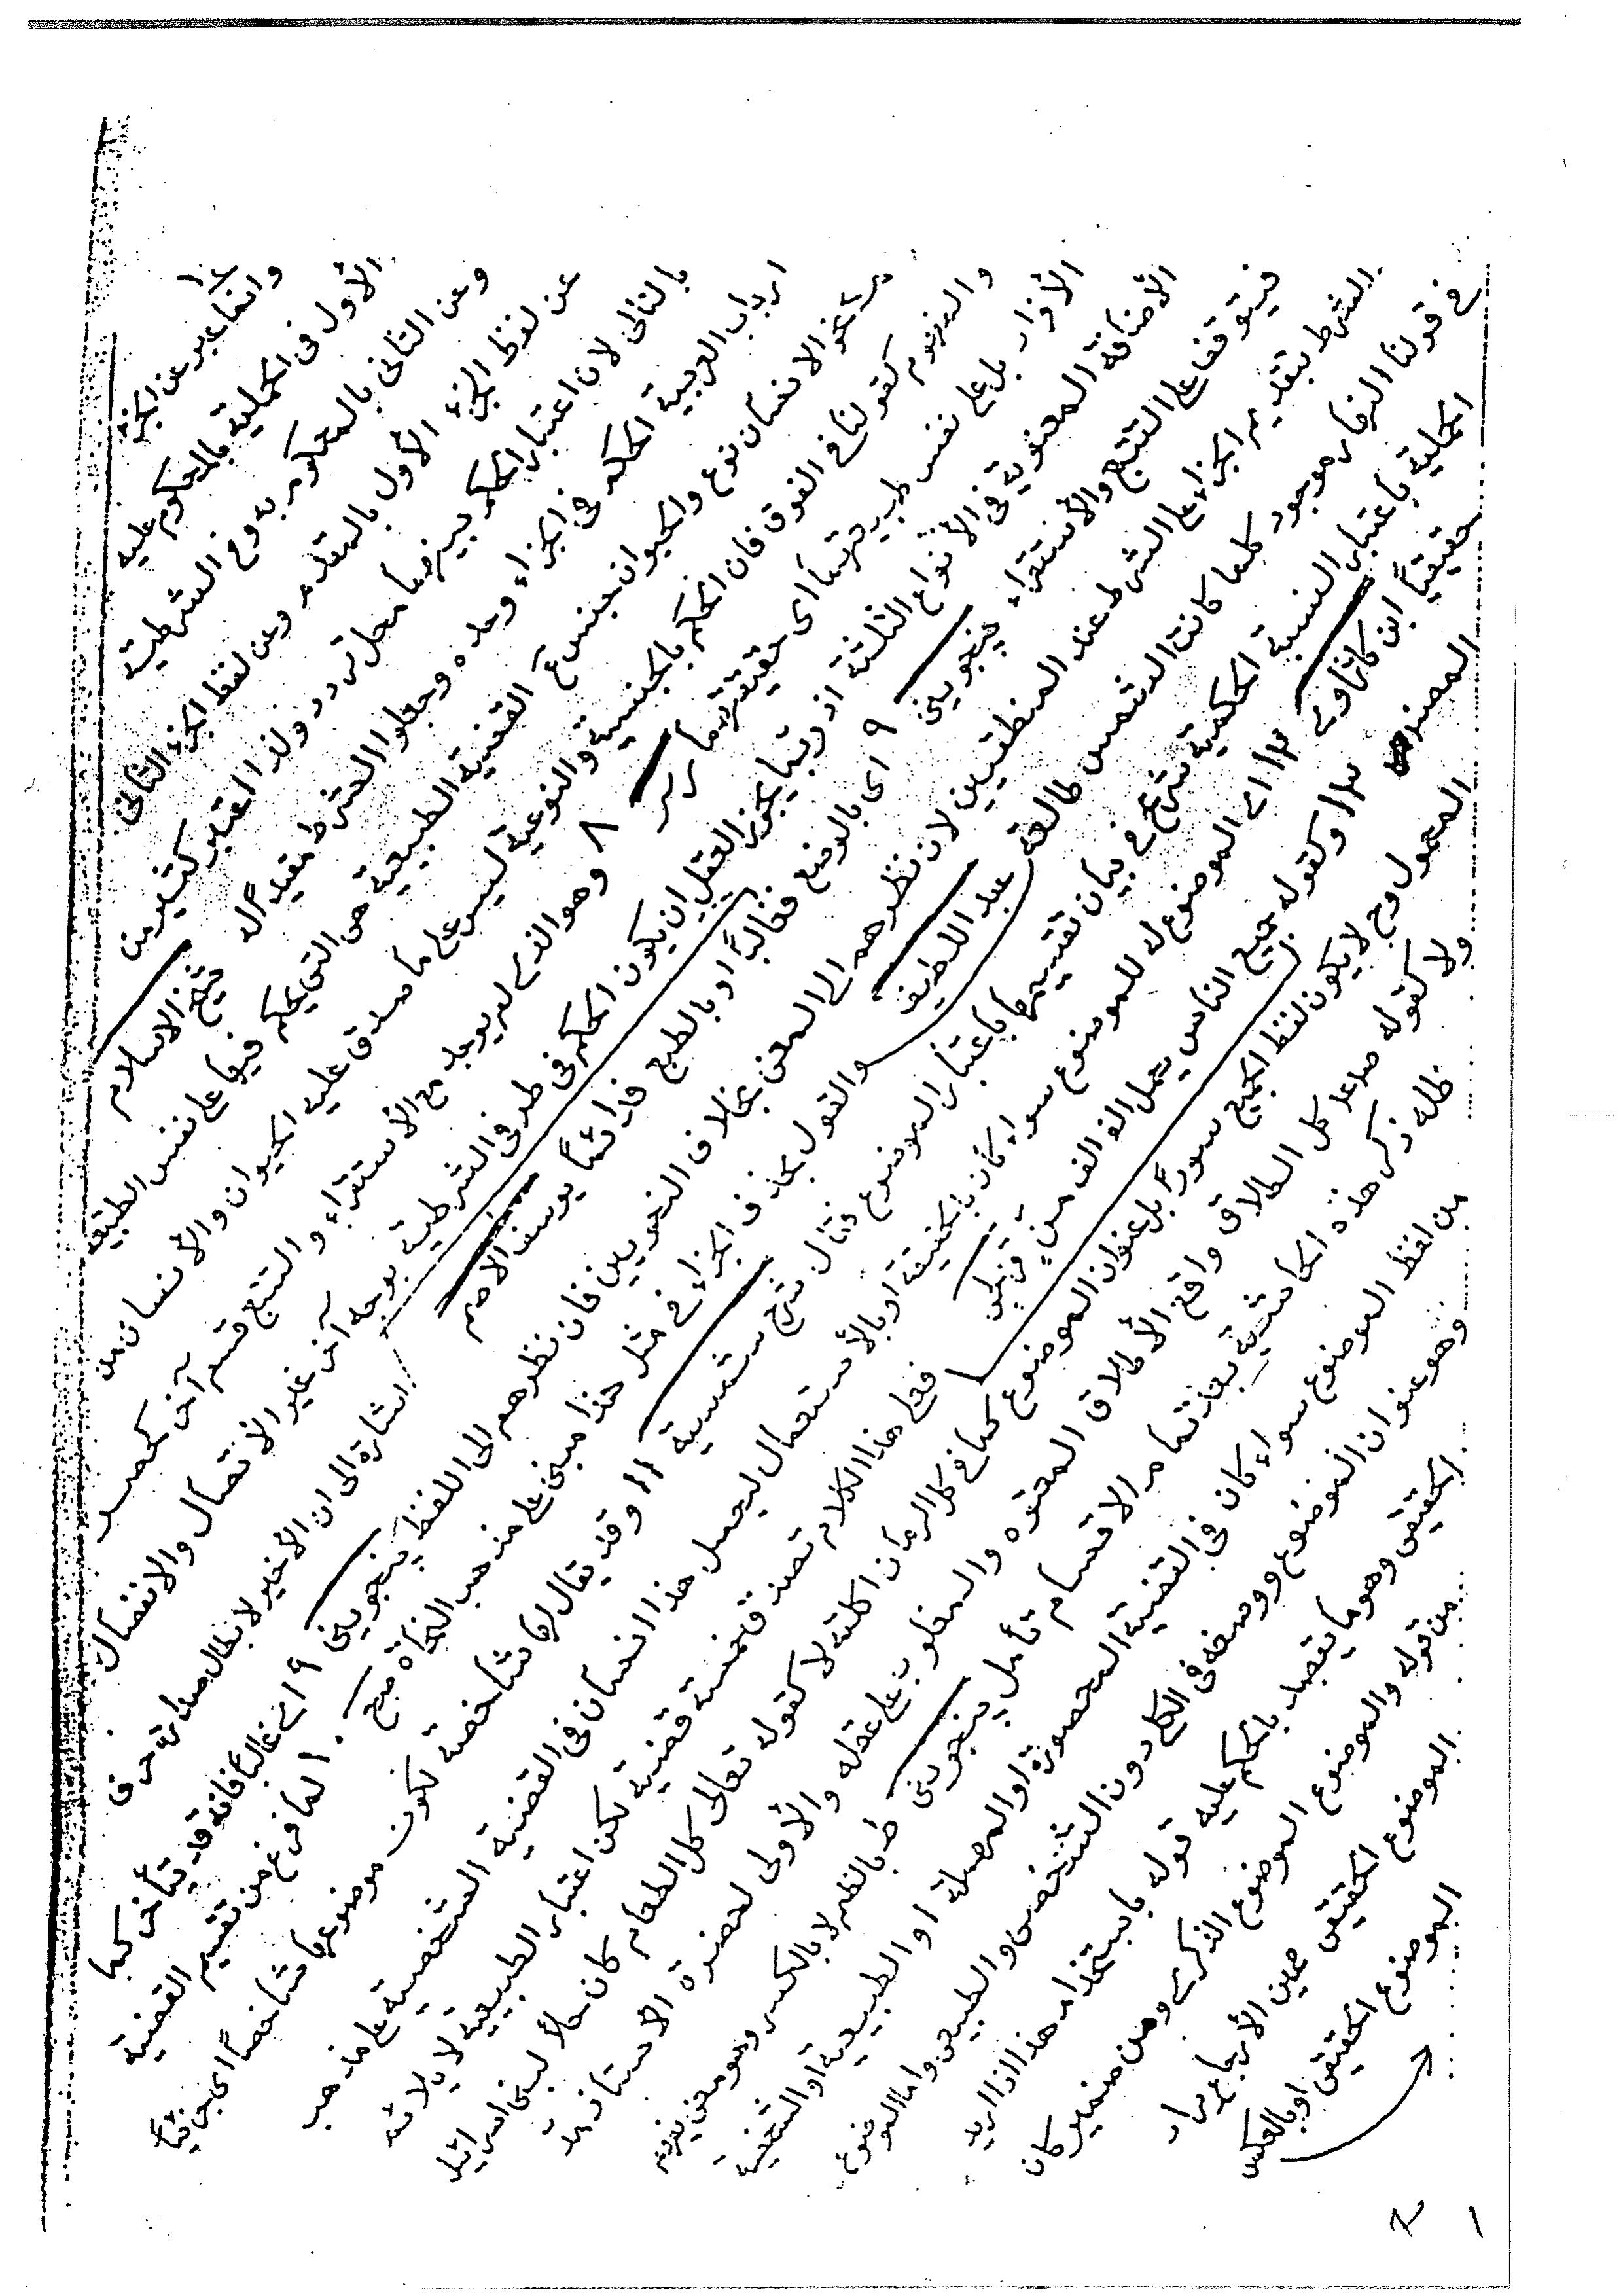 وانما عبر عن الجزء
الأول فى الحملية بالمحكوم عليه
وعن الثانى بالمحكوم به وفى الشرطية
عن لفظ الجزء الأول بالمقدم وعن لفظ الجزء الثانى
بالتالى لان اعتبار الحكم بينهما محل تردد ولذا اعتبر كثير من
ارباب العربية الحكم فى الجزاء وحده وجعلوا الشرط مقيدًا له شيخ الاسلام
نحو الانسان نوع والحيوان جنس ع القضية الطبيعية هى التى يحكم فيها على نفس الطبيعة
والمفهوم كقولنا فى الفوق فان الحكم بالجنسية والنوعية ليس على ما صدق عليه الحيوان والأنسان من
الأفراد بل على نفس طبيعتهما اى حقيقتهما ٨ وهو الذى لم يوجد مع الأستقراء والتتبع قسم آخر كحصر
الأضافة المعنوية فى الأنواع الثلثة اذ ربما يجوز العقل ان يكون الحكم فى طرفى الشرطية بوجه آخر غير الاتصال والانفصال
فيتوقف على التتبع والأستقراء پنجوينى ٩ اى بالوضع فغالبًا او بالطبع فدائمًا يوسف الاصم اشارة الى ان الأخير لا بطال
الشرط بتقدير الجزاء على الشرط عند المنطقيين لان نظرهم الى المعنى بخلاف النحويين فان نظرهم الى اللفظ پنجوينى ٩ اى غالبًا فانه قد يتأخر كما
فى قولنا النهار موجود كلما كانت الشمس طالعة عبد اللطيف والقول بحذف الجزاء فى مثل هذا مبنى على مذهب النحاة ١٠ لما فرغ من تقسيم القضية
الحملية باعتبار النسبة الحكمية شرع فى بيان تقسيمها باعتبار الموضوع فقال شرح شمسية ١١ وقد يقال لها شاخصة لكون موضوعها شاخصًا اى جزئيًا
حقيقيًا ١٢ اى الموضوع له للموضوع سواء كان بالحقيقة او بالأستعمال ليحصل هذا انسان فى القضية الشخصية على مذهب
المصنف ١٣ وكقوله جميع الناس يحمل الف الف منٍّ قزلجى فعلى هذا الكلام تصدق خمسة قضية لكن اعتبار الطبيعية لا يلائمه
المحمول وح لا يكون لفظ الجميع سورًا بل عنوان الموضوع كما فى كل الرمان اكلته لا كقوله تعالى كل الطعام كان حلاً لبنى اسرائيل
ولا كقوله صلعم كل الطلاق واقع الأ طلاق المعتوه والمغلوب على عقله والأولى لحضرة الاستاذ مد
ظله ذكر هذه الحاشية بعد تمام الاقسام تأمل پنجوينى ط بالظهر لا بالكسر وهو معنى يفهم
من لفظ الموضوع سواء كان فى القضية المحصورة او المهملة او الطبيعية او الشخصية
وهو عنوان الموضوع ووصفه فى الكل دون الشخص والطبيعى واما الموضوع
الحقيقى وهو ما يقصد بالحكم عليه قوله بأستخدام هذا اذا اريد
من قوله والموضوع الموضوع الذكرى ومن ضمير كان
الموضوع الحقيقى فحين الأرجاع يراد
الموضوع الحقيقى او بالعكس